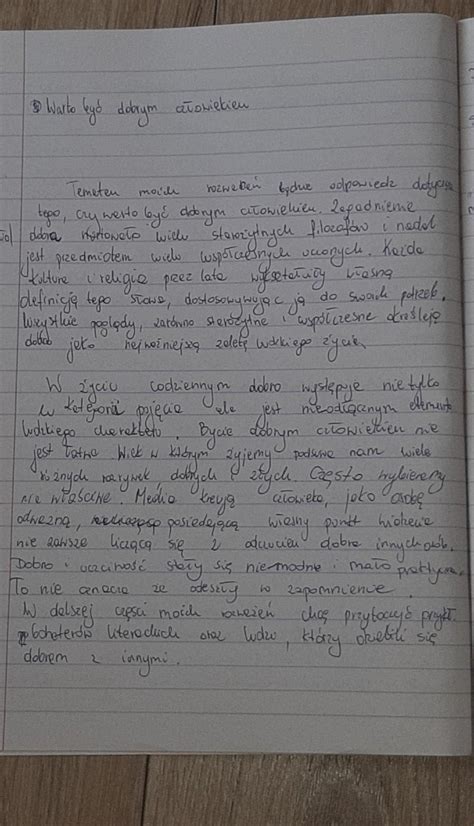 Warto być dobrym człowiekiem
Tematem moich rozważań będzie odpowiedz dotycząca
tego, czy warto być dobrym człowiekiem. Zagadnienie
dobra wielu starożytnych filozofów i nadal
jest przedmiotem wielu współczesnych uczonych. Każda
kultura i religia przez lata wykształciły własną
definicję tego słowa, dostosowywując ją do swoich potrzeb.
Wszystkie poglądy, zarówno starożytne i współczesne określają
dobro jako najważniejszą zaletę ludzkiego życia.
W życiu codziennym dobro występuje nie tylko
w kategorii pojęcia ale jest nieodłącznym elementem
ludzkiego charakteru. Bycie dobrym człowiekiem nie
jest łatwe. Wiek w którym żyjemy podsuwa nam wiele
różnych dobrych i złych. Często wybieramy
nie właściwe. Media kreują człowieka, jako osobę
odważną, posiadającą własny punkt widzenia
nie zawsze liczącą się z odczuciem dobra innych osób.
Dobro i uczciwość stały się niemodne i mało praktyczne.
To nie oznacza że odeszły w zapomnienie.
W dalszej części moich rozważań chcę przytoczyć przykł.
bohaterów literackich oraz ludzi, którzy dzielili się
dobrem z innymi.